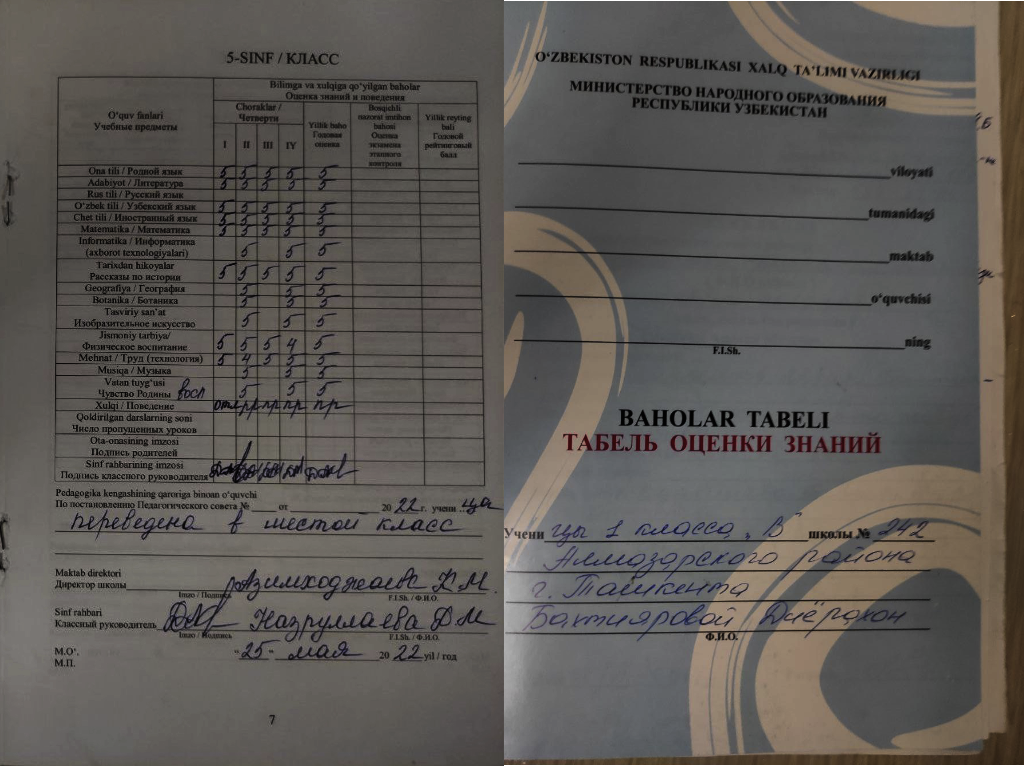 5-SINF / КЛАСС
O‘quv fanlari
Учебные предметы
Bilimga va xulqiga qo‘yilgan baholar
Оценка знаний и поведения
Choraklar /
Четверти
I II III IY
Yillik baho
Годовая
оценка
Bosqichli
nazorat imtihon
bahosi
Оценка
экзамена
этапного
контроля
Yillik reyting
bali
Годовой
рейтинговый
балл
Ona tili / Родной язык 5 5 5 5 5
Adabiyot / Литература 5 5 5 5 5
Rus tili / Русский язык
O‘zbek tili / Узбекский язык 5 5 5 5 5
Chet tili / Иностранный язык 5 5 5 5 5
Matematika / Математика 5 5 5 5 5
Informatika / Информатика
(axborot texnologiyalari) 5 5 5
Tarixdan hikoyalar
Рассказы по истории 5 5 5 5 5
Geografiya / География 5 5 5
Botanika / Ботаника 5 5 5
Tasviriy san’at
Изобразительное искусство 5 5 5
Jismoniy tarbiya/
Физическое воспитание 5 5 5 4 5
Mehnat / Труд (технология) 5 4 5 5 5
Musiqa / Музыка 5 5 5
Vatan tuyg‘usi
Чувство Родины восп 5 5 5
Xulqi / Поведение отл пр пр пр пр
Qoldirilgan darslarning soni
Число пропущенных уроков
Ota-onasining imzosi
Подпись родителей
Sinf rahbarining imzosi
Подпись классного руководителя
Pedagogika kengashining qaroriga binoan o‘quvchi
По постановлению Педагогического совета № от 2022 г. учени ца
переведена в шестой класс
Maktab direktori
Директор школы Азимходжаева Х.М.
Imzo / Подпись F.I.Sh. / Ф.И.О.
Sinf rahbari
Классный руководитель Назруллаева Д М
Imzo / Подпись F.I.Sh. / Ф.И.О.
M.O‘. "25" мая 2022 yil / год
М.П.
7
O‘ZBEKISTON RESPUBLIKASI XALQ TA’LIMI VAZIRLIGI
МИНИСТЕРСТВО НАРОДНОГО ОБРАЗОВАНИЯ
РЕСПУБЛИКИ УЗБЕКИСТАН
viloyati
tumanidagi
maktab
o‘quvchisi
ning
F.I.Sh.
BAHOLAR TABELI
ТАБЕЛЬ ОЦЕНКИ ЗНАНИЙ
Учени цы 1 класса „В" школы № 242
Алмазарского района
г. Ташкента
Бахтияровой Диёрахон
Ф.И.О.